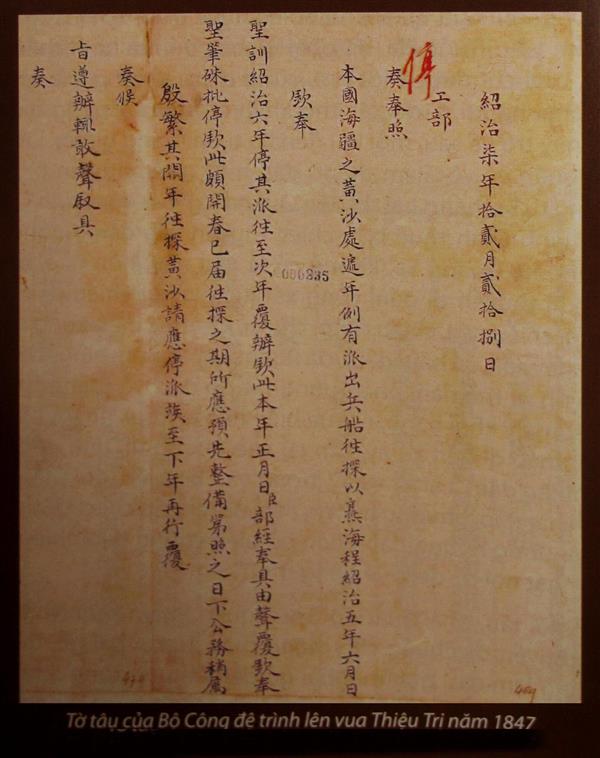 紹治柒年拾貳月貳拾捌日
工部
停
奏奉照
本國海疆之黃沙處遞年例有派出兵船徃探以熟海程紹治五年六月日
欽奉
聖訓紹治六年停其派徃至次年覆辦欽此本年正月日臣部經奉具由聲覆欽奉
聖筆硃批停欽此頗開春已届徃探之期所應預先整備第照之日下公務稍屬
殷繁其開年徃探黃沙請應停派俟至下年再行覆
奏候
旨遵辦輒敢聲叙具
奏
Tờ tâu của Bộ Công đệ trình lên vua Thiệu Trị năm 1847